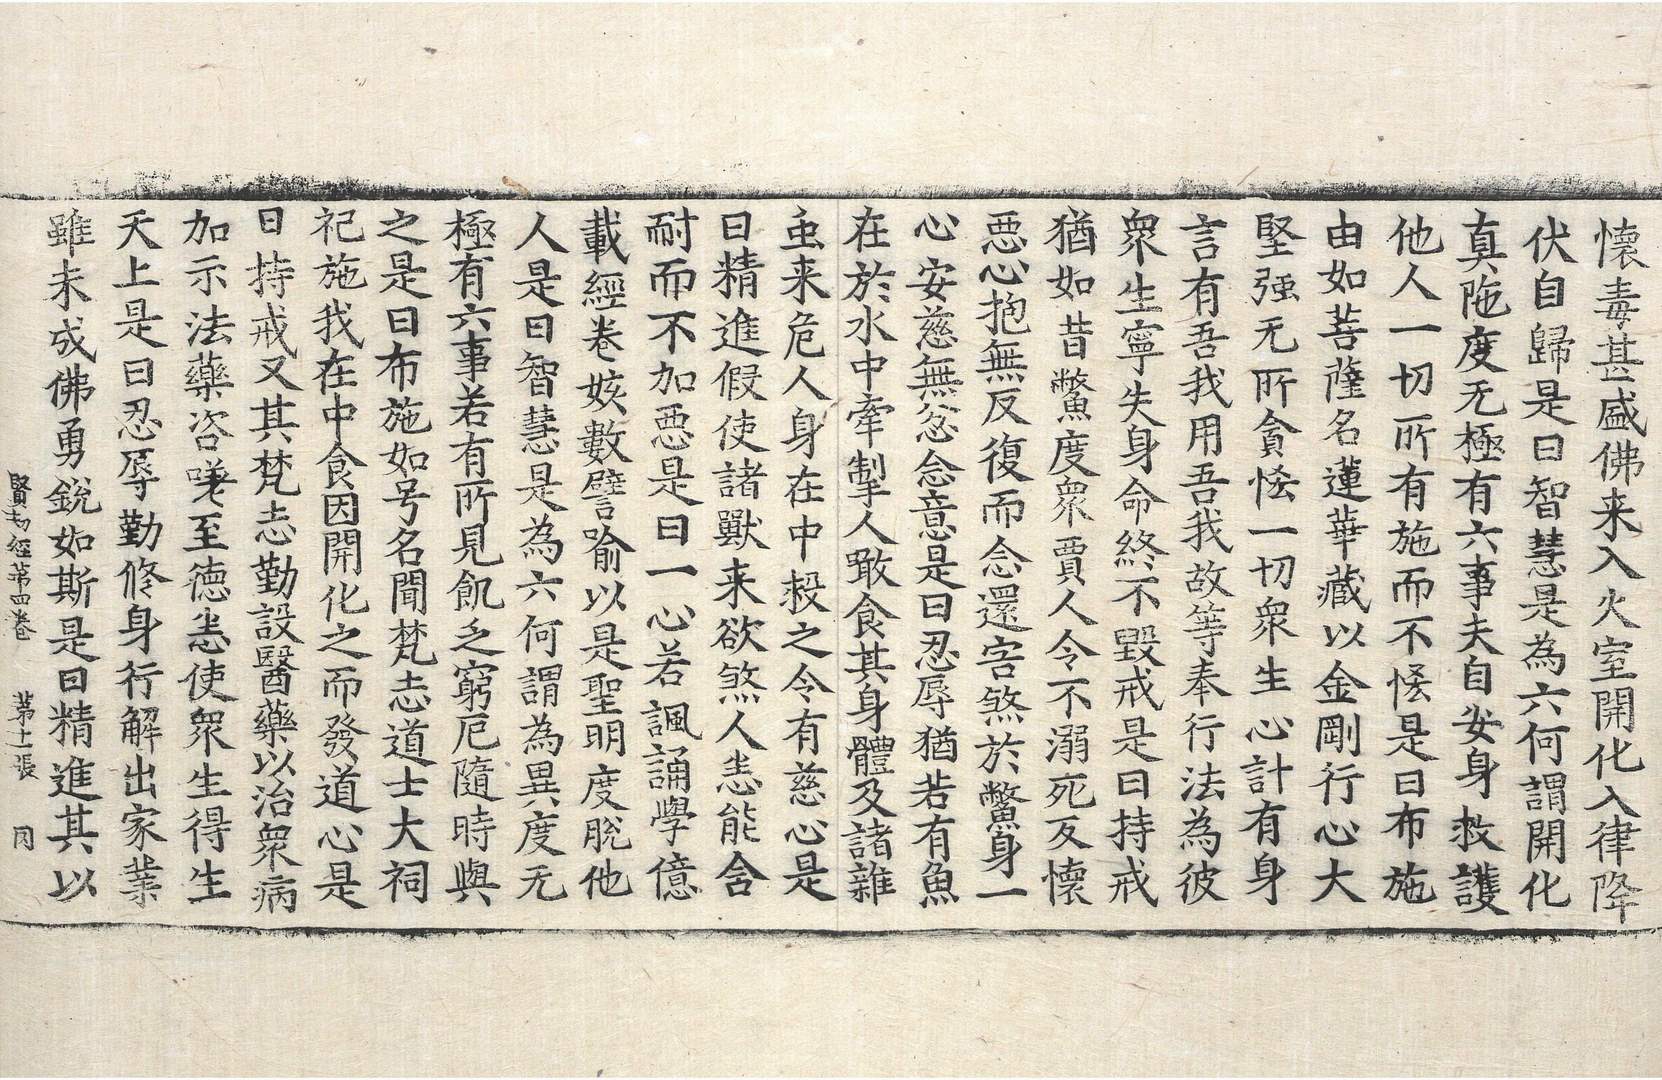 懷毒甚盛佛来入火室開化入律降
伏自歸是曰智慧是為六何謂開化
真陁度无極有六事夫自安身救護
他人一切所有施而不悋是曰布施
由如菩薩名蓮華藏以金剛行心大
堅强无所貪悋一切衆生心計有身
言有吾我用吾我故等奉行法為彼
衆生寧失身命終不毀戒是曰持戒
猶如昔鱉度衆賈人令不溺死反懷
惡心抱無反復而念還害煞於鱉身一
心安慈無忿恚意是曰忍辱猶若有魚
在於水中牽掣人噉食其身體及諸雜
虫来危人身在中投之令有慈心是
曰精進假使諸獸来欲煞人恚能含
耐而不加惡是曰一心若諷誦學億
載經卷姟數譬喻以是聖明度脫他
人是曰智慧是為六何謂為異度无
極有六事若有所見飢乏窮厄隨時與
之是曰布施如号名聞梵志道士大祠
祀施我在中食因開化之而發道心是
曰持戒又其梵志勤設醫藥以治衆病
加示法藥咨嗟至德恚使衆生得生
天上是曰忍辱勤修身行解出家業
雖未成佛勇銳如斯是曰精進其以
賢劫經苐四卷 苐十一張 同